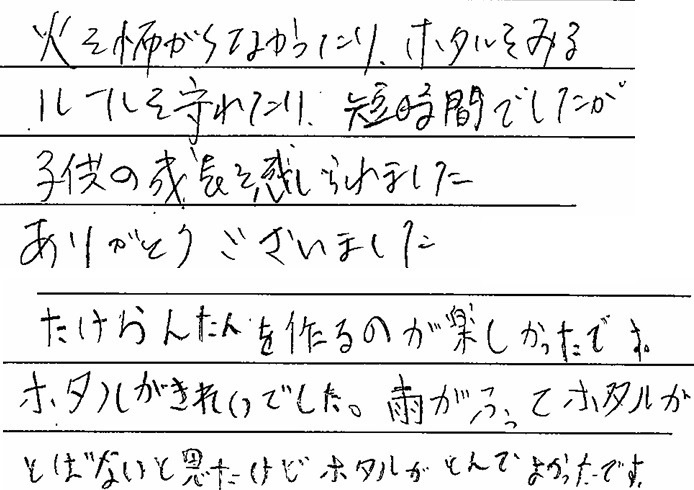 火を怖がらなかったり、ホタルをみる
ルールを守れたり、短時間でしたが
子供の成長を感じられました
ありがとうございました
たけらんたんを作るのが楽しかったです。
ホタルがきれいでした。雨がふってホタルが
とばないと思たけどホタルがとんでよかったです。